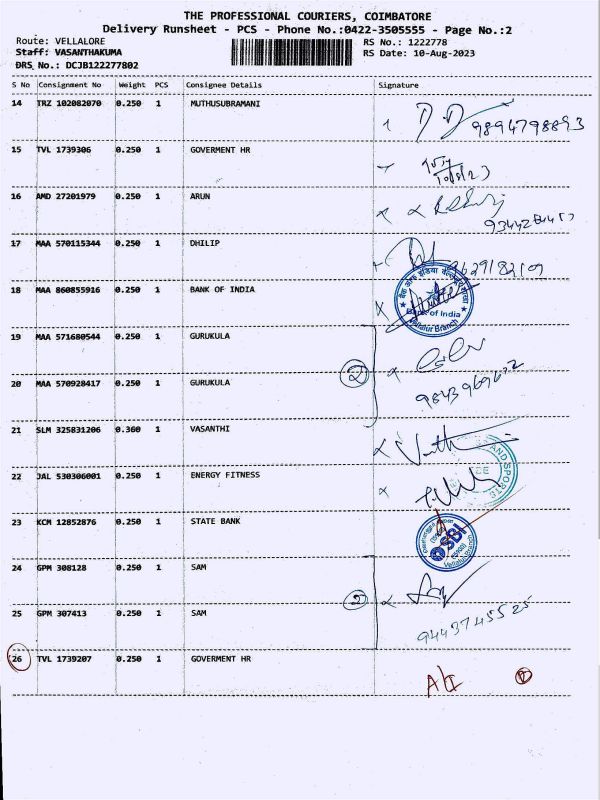 THE PROFESSIONAL COURIERS, COIMBATORE
Delivery Runsheet - PCS - Phone No.:0422-3505555 - Page No.:2
Route: VELLALORE
RS No.: 1222778
Staff: VASANTHAKUMA
RS Date: 10-Aug-2023
DRS No.: DCJB122277802
S No Consignment No Weight PCS Consignee Details Signature
14 TRZ 102082070 0.250 1 MUTHUSUBRAMANI
9894798893
15 TVL 1739306 0.250 1 GOVERMENT HR
16 AMD 27201979 0.250 1 ARUN
17 MAA 570115344 0.250 1 DHILIP
18 MAA 860855916 0.250 1 BANK OF INDIA
Bank of India
Vellalur Branch
19 MAA 571680544 0.250 1 GURUKULA
2
20 MAA 570928417 0.250 1 GURUKULA
21 SLM 325831206 0.360 1 VASANTHI
22 JAL 530306001 0.250 1 ENERGY FITNESS
AND SPORTS
23 KCM 12852876 0.250 1 STATE BANK
SBI
24 GPM 308128 0.250 1 SAM
2
25 GPM 307413 0.250 1 SAM
9443745525
26 TVL 1739207 0.250 1 GOVERMENT HR